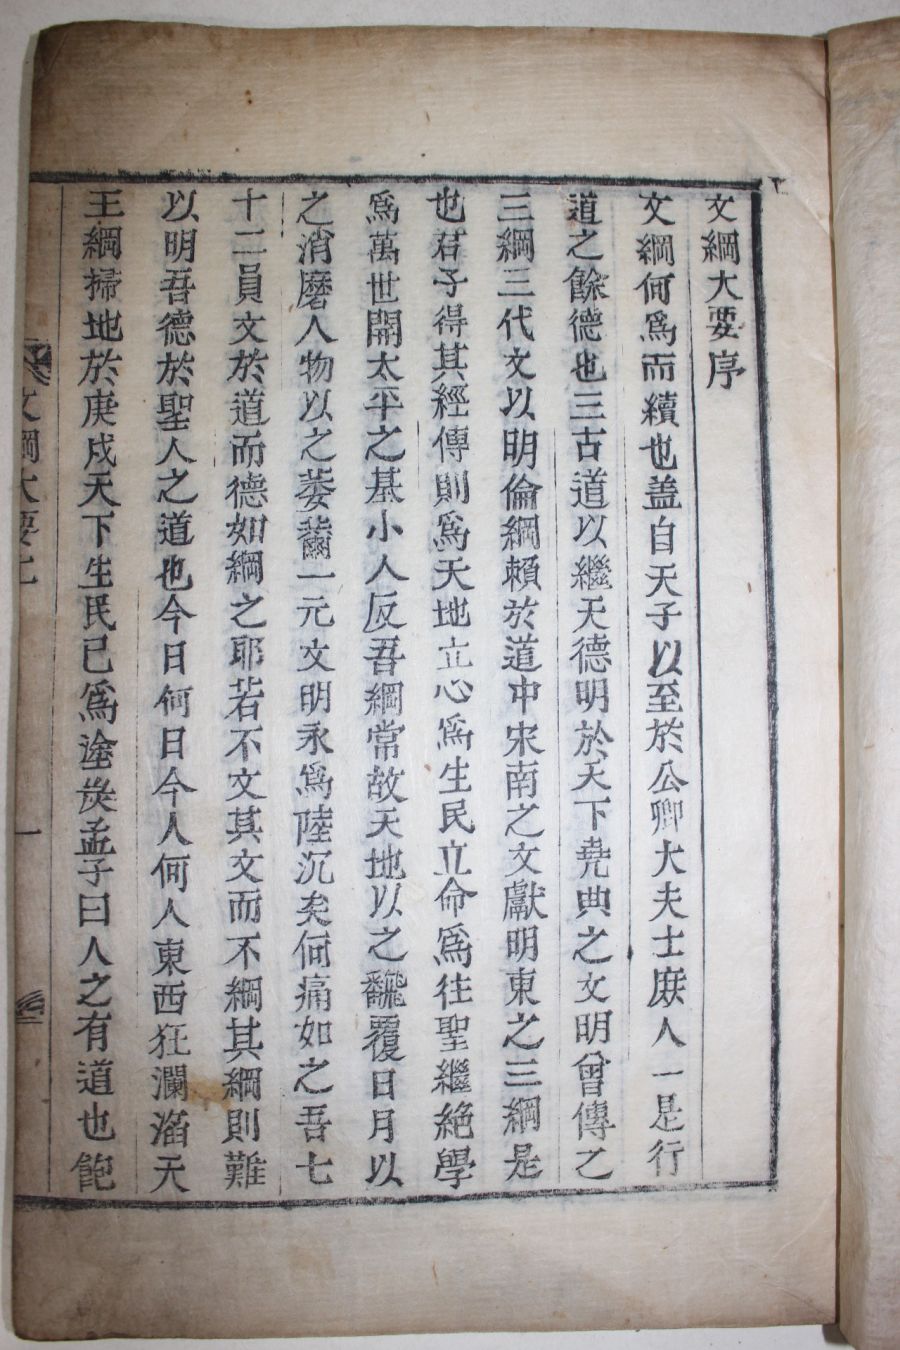 文綱大要序
文綱何爲而續也盖自天子以至於公卿大夫士庶人一是行
道之餘德也三古道以繼天德明於天下堯典之文明曾傳之
三綱三代文以明倫綱頼於道中宋南之文獻明東之三綱是
也君子得其經傳則爲天地立心爲生民立命爲往聖繼絶學
爲萬世開太平之基小人反吾綱常故天地以之飜覆日月以
之消磨人物以之萎薾一元文明永爲陸沉矣何痛如之吾七
十二員文於道而德如綱之耶若不文其文而不綱其綱則難
以明吾德於聖人之道也今日何日今人何人東西狂瀾滔天
王綱掃地於庚戌天下生民已爲塗炭孟子曰人之有道也飽
文綱大要上 一